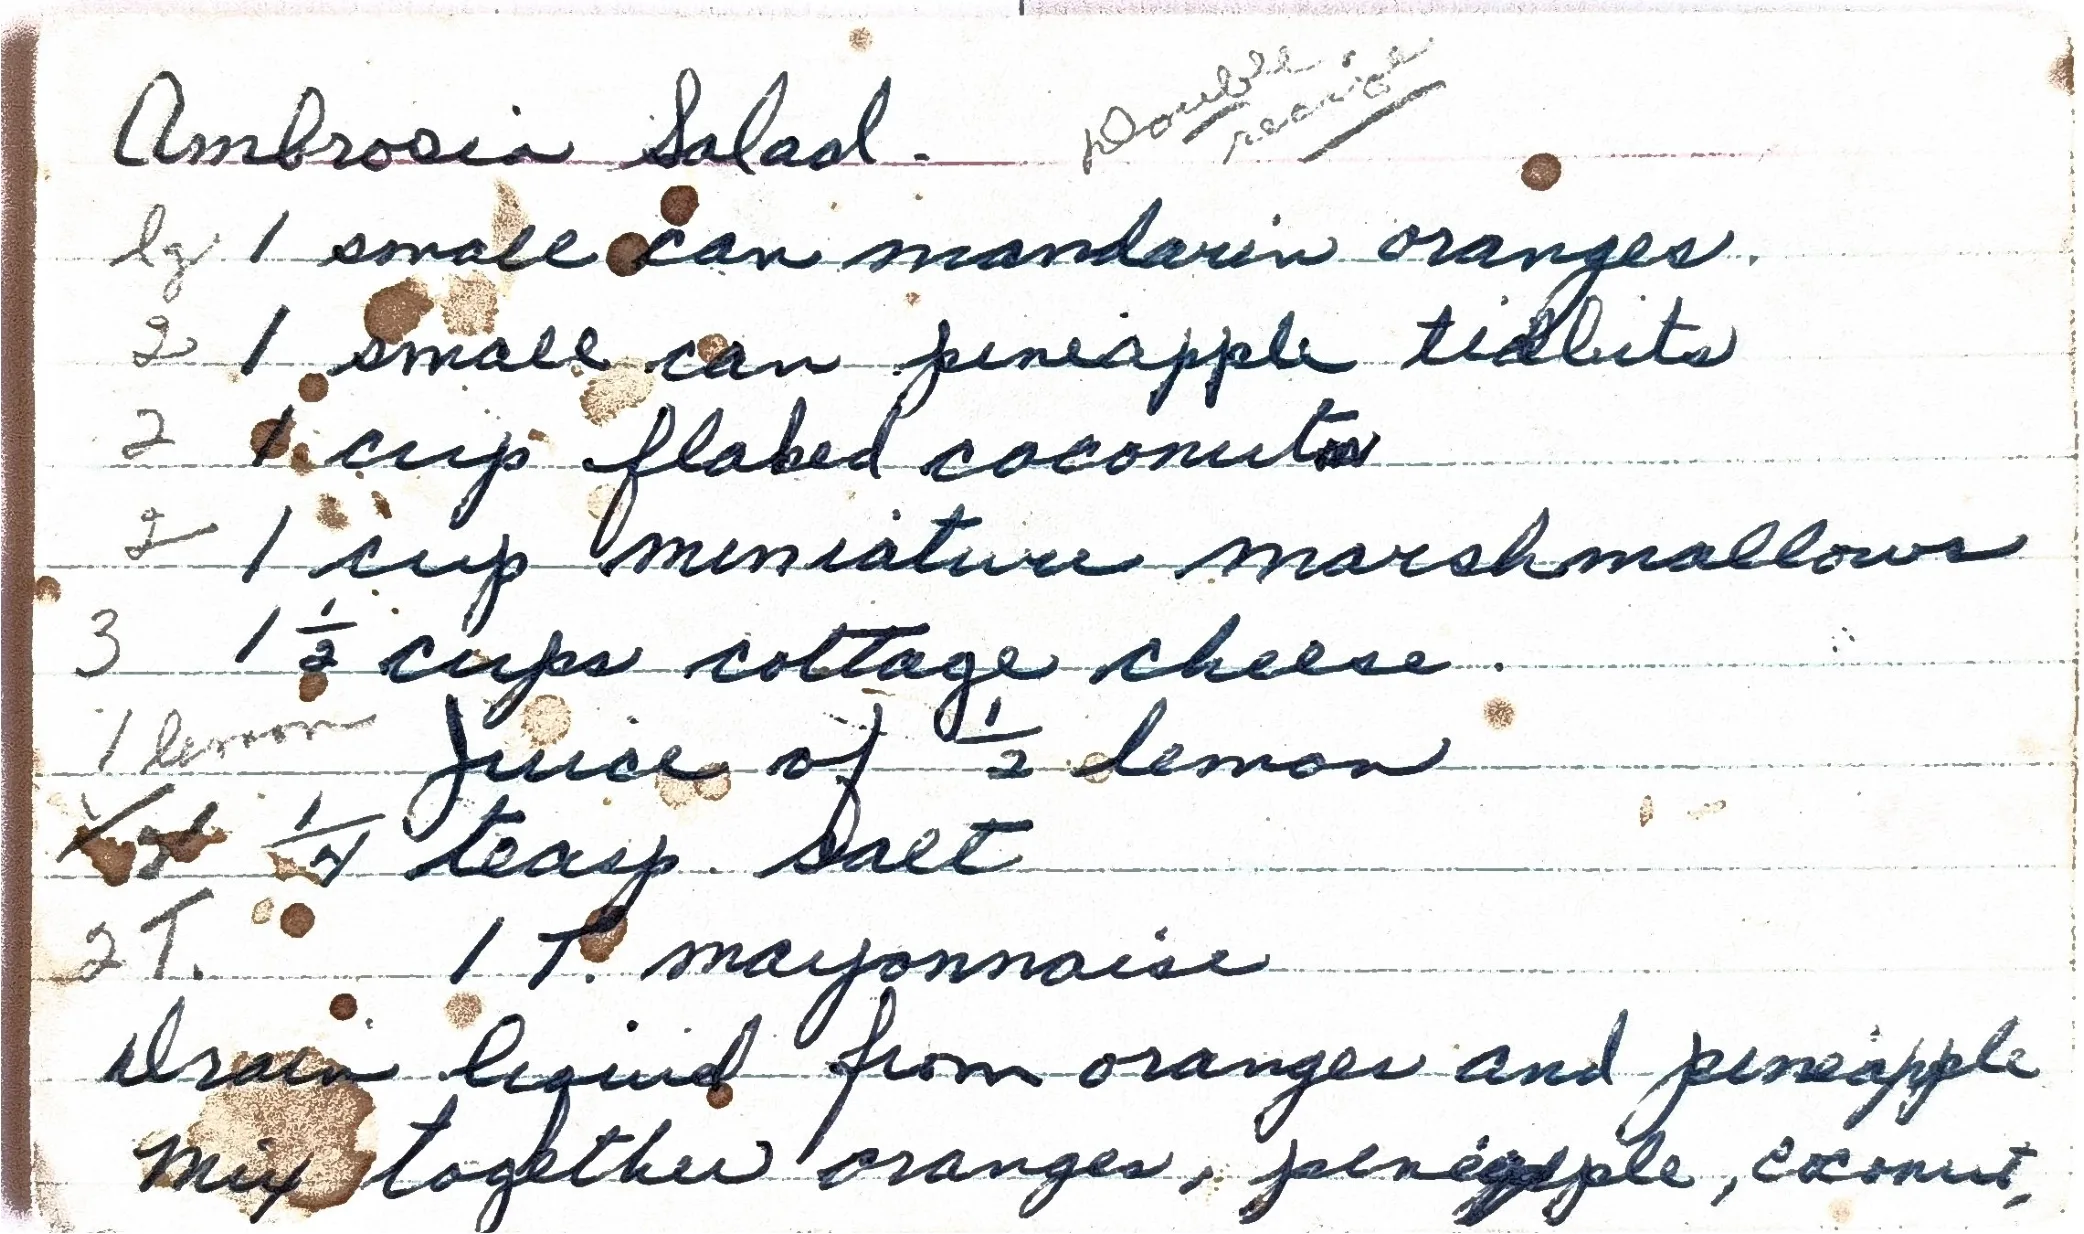 Ambrosia Salad. Double
recipe
lg 1 small can mandarin oranges.
2 1 small can pineapple tidbits
2 1 cup flaked coconut
2 1 cup miniature marshmallows
3 1 1/2 cups cottage cheese.
1 lemon Juice of 1/2 lemon
1/4 teasp. Salt
2 T. 1 T. mayonnaise
Drain liquid from oranges and pineapple
Mix together oranges, pineapple, coconut,